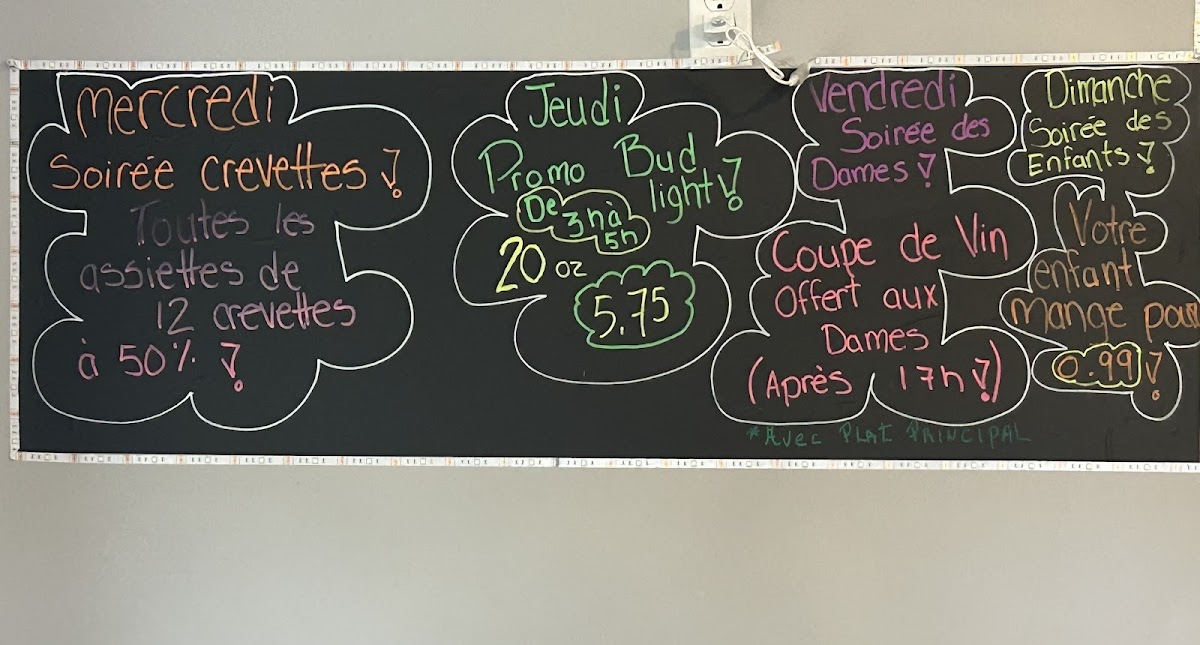 Mercredi
Soirée crevettes !
Toutes les
assiettes de
12 crevettes
à 50% !
Jeudi
Promo Bud
light !
De 3h à
5h
20 oz
5.75
Vendredi
Soirée des
Dames !
Coupe de Vin
Offert aux
Dames
(Après 17h !)
*Avec PLAT PRINCIPAL
Dimanche
Soirée des
Enfants !
Votre
enfant
mange pour
0.99 !